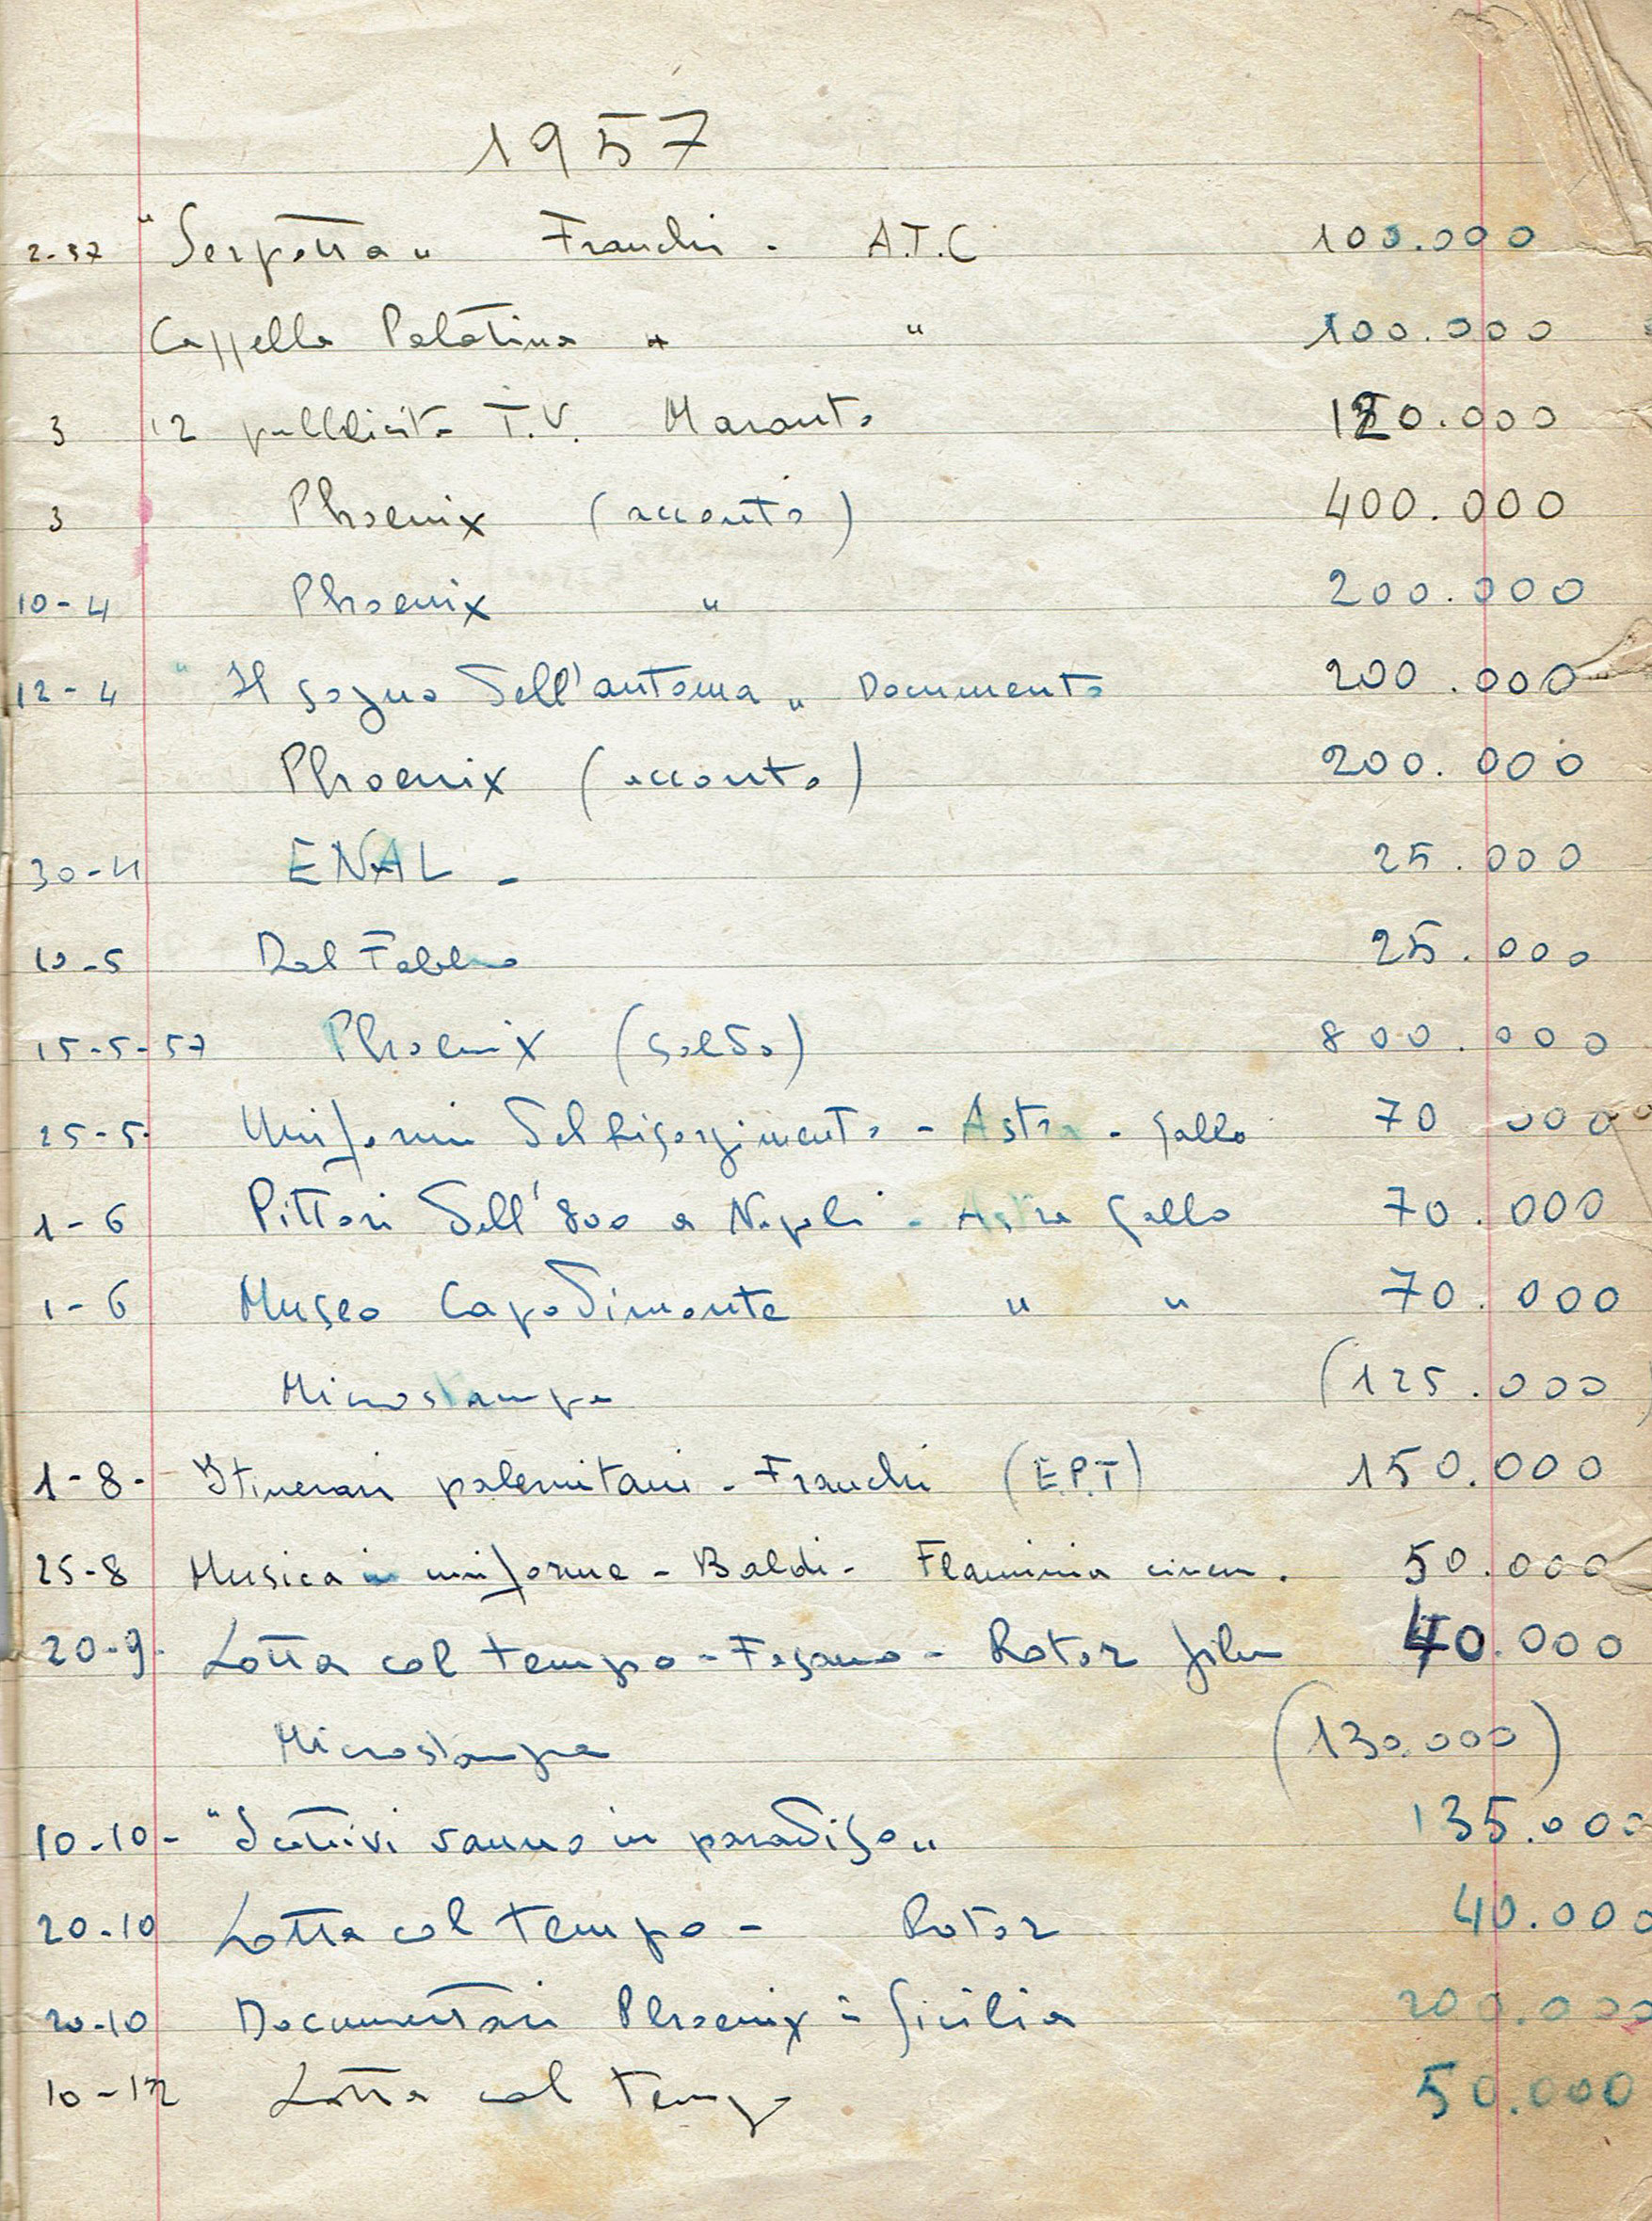 1957
2-57 "Serpotta" Franchi - A.T.C 100.000
Cappella Palatina " " 100.000
3 12 pubblicità T.V. Maranto 120.000
3 Phoenix (acconto) 400.000
10-4 Phoenix " 200.000
12-4 "Il sogno dell'automa" Documento 200.000
Phoenix (acconto) 200.000
30-4 ENAL - 25.000
10-5 Dal Fabbro 25.000
15-5-57 Phoenix (saldo) 800.000
25-5- Uniformi del Risorgimento - Astra - Gallo 70.000
1-6 Pittori dell'800 a Napoli - Astra Gallo 70.000
1-6 Museo Capodimonte " " 70.000
Microstampa (125.000)
1-8- Itinerari palermitani - Franchi (E.P.T) 150.000
25-8 Musica in uniforme - Baldi - Flaminia cinem. 50.000
20-9- Lotta col tempo - Fasano - Rotor film 40.000
Microstampa (130.000)
10-10- " vanno in paradiso" 135.000
20-10 Lotta col tempo - Rotor 40.000
20-10 Documentari Phoenix in Sicilia 200.000
10-12 Lotta col tempo 50.000